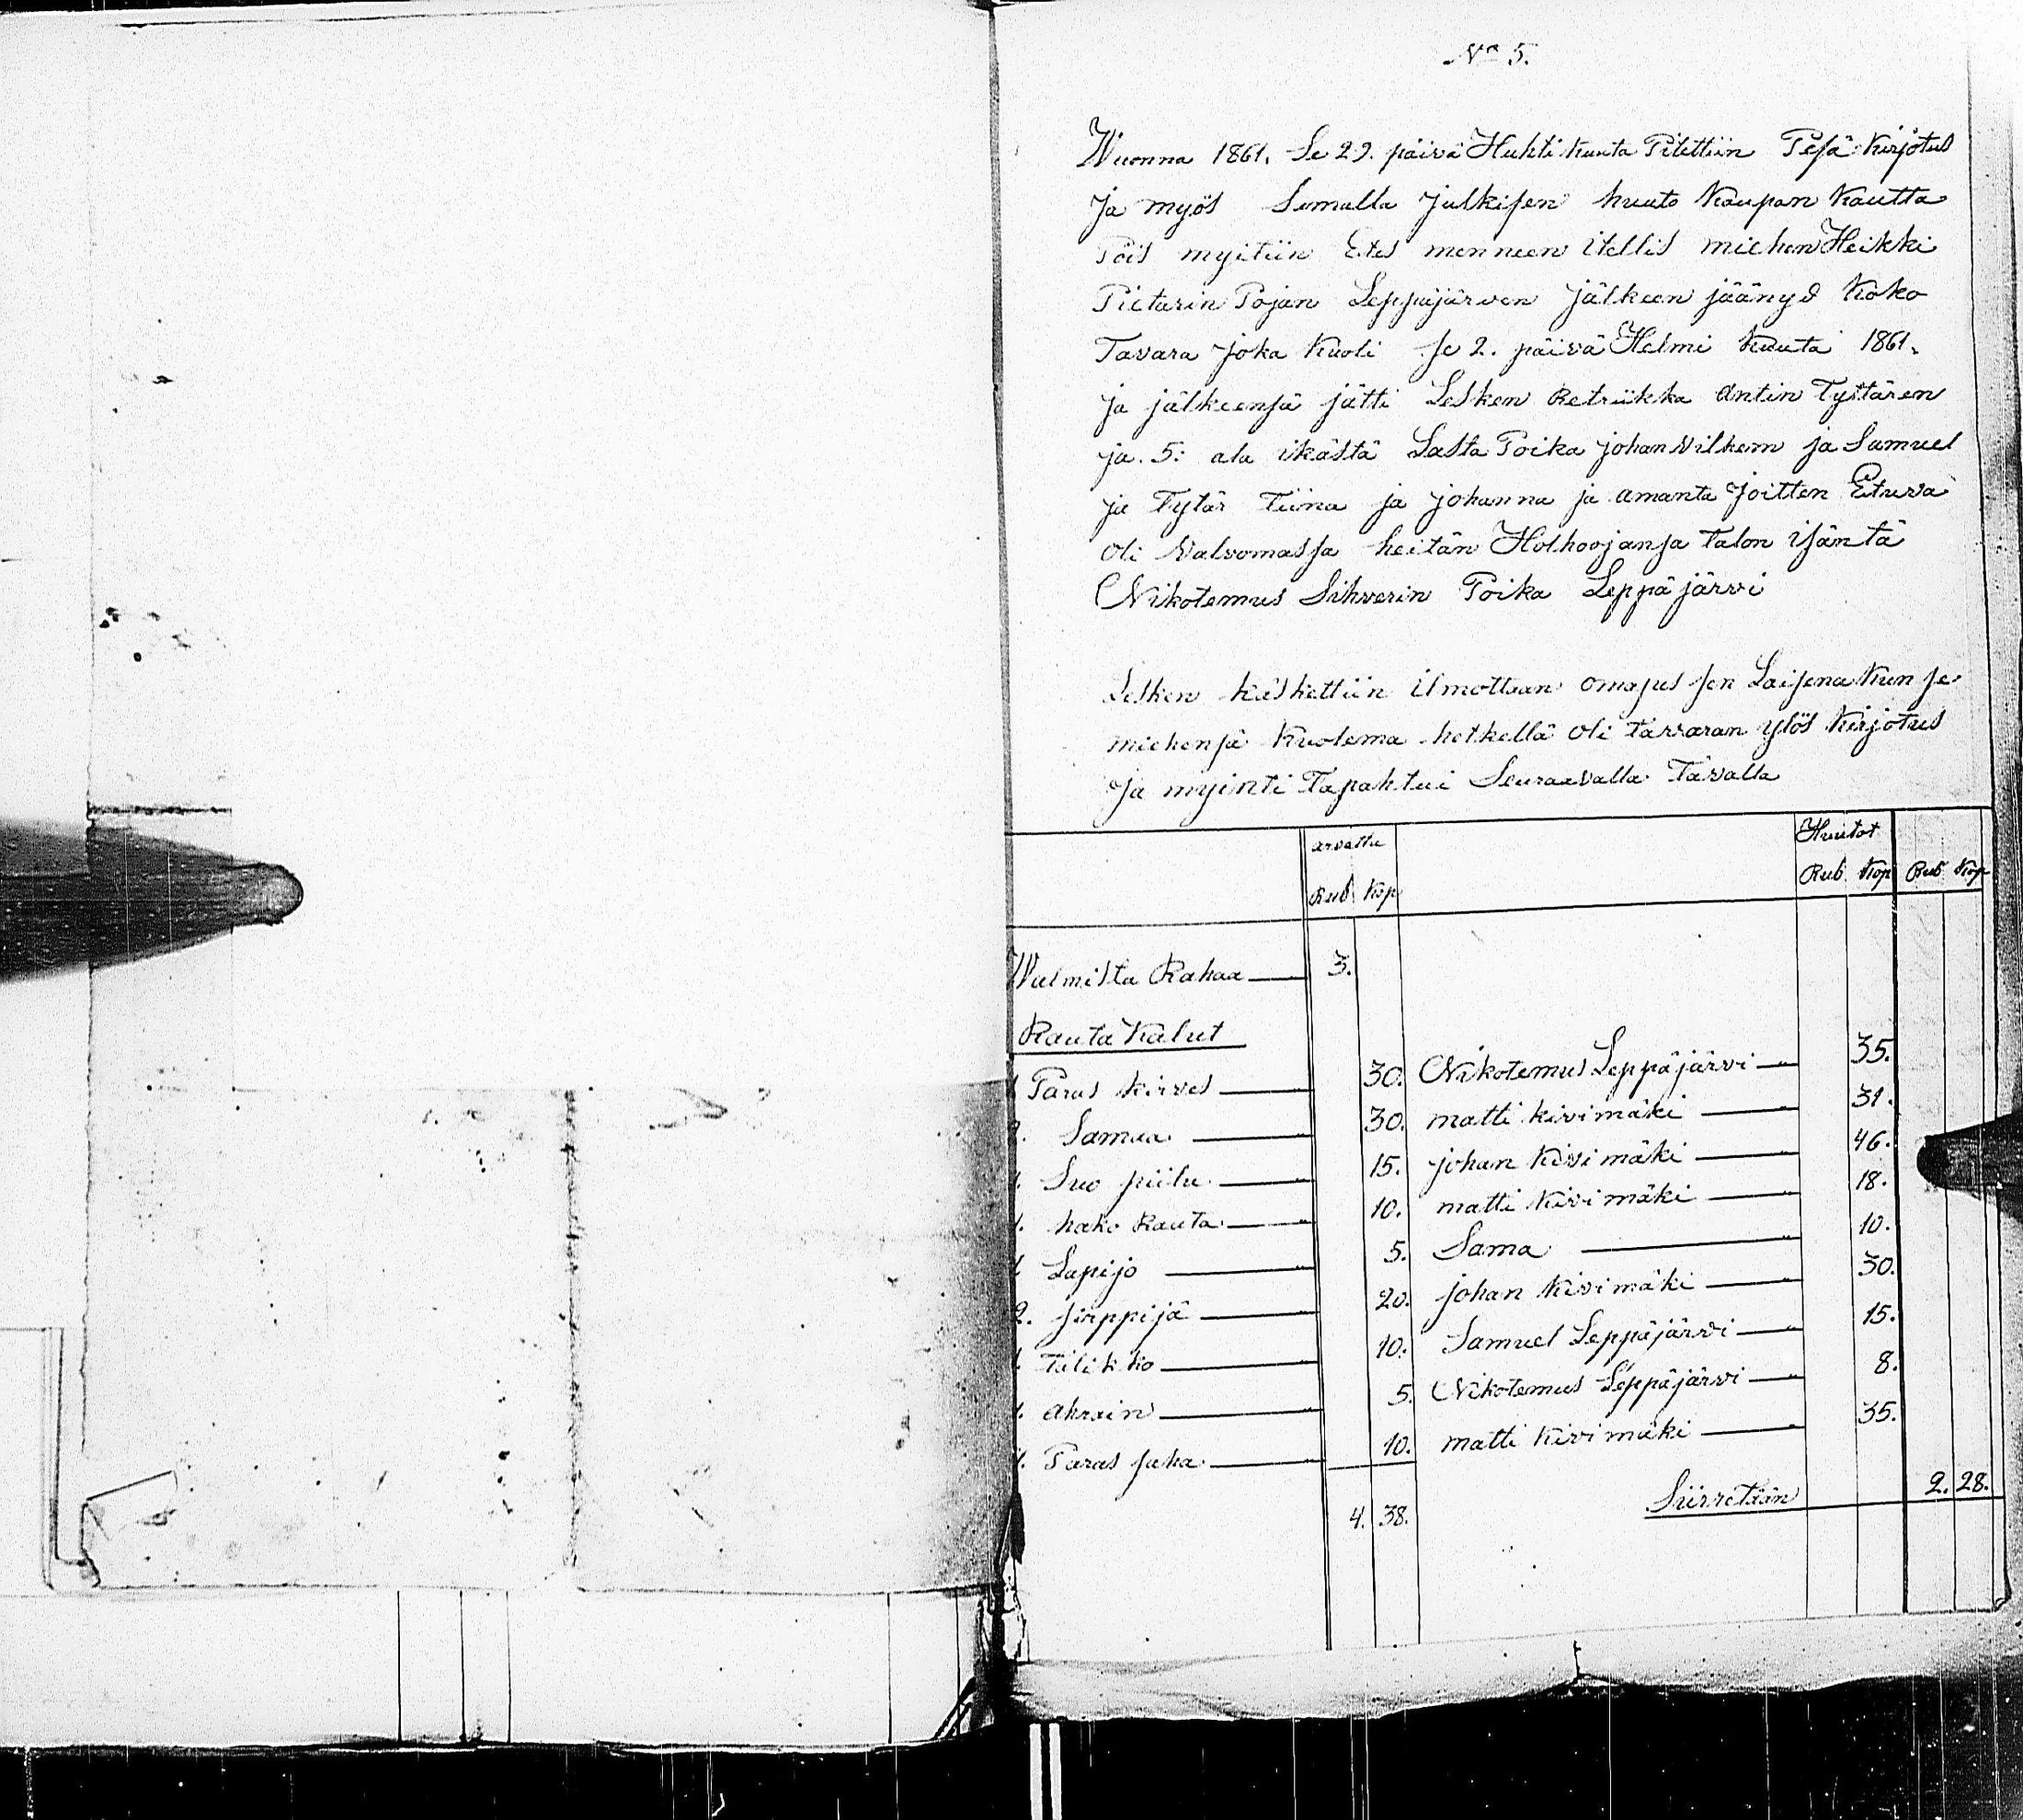 No 5.
Wuonna 1861. Se 29. päivä Huhti kuuta Pitettiin Pesä kirjotus
ja myös Samalla julkisen huuto kaupan kautta
Pois myitiin Etes menneen itellis miehen Heikki
Pietarin Pojan Leppäjärven jälkeen jäänyd koko
Tavara joka kuoli se 2. päivä Helmi kuuta 1861.
ja jälkeensä jätti Lesken Retriikka Antin Tyttären
ja. 5: ala ikästä Lasta Poika johan Vilhem ja Samuel
ja Tytär Tiina ja johanna ja amanta joitten Etuva
oli Valvomassa heitän Holhoojansa Talon isäntä
Nikotemus Sihverin Poika Leppäjärvi
Lesken käskettiin ilmottaan omasus sen Laisena kun se
miehensä kuolema hetkellä oli tavaran ylös kirjotus
ja myinti Tapahtui Seuraavalla Tavalla
arvattu Huutot
Rub Kop Rub Kop Rub Kop
Walmista Rahaa 3.
Rauta kalut
1 Paras kirves 30. Nikotemus Leppäjärvi 35.
Samaa 30. matti kivimäki 31.
1. Suo piilu 15. johan kivimäki 46.
1. hako Rauta 10. matti kivimäki 18.
1 Lapijo 5. Sama 10.
2. sirppijä 20. johan kivimäki 30.
1. Talikko 10. Samuel Leppäjärvi 15.
1. ahrain 5. Nikotemus Leppäjärvi 8.
1. Paras saha 10. matti kivimäki 35.
4. 38. Siirretään 2. 28.